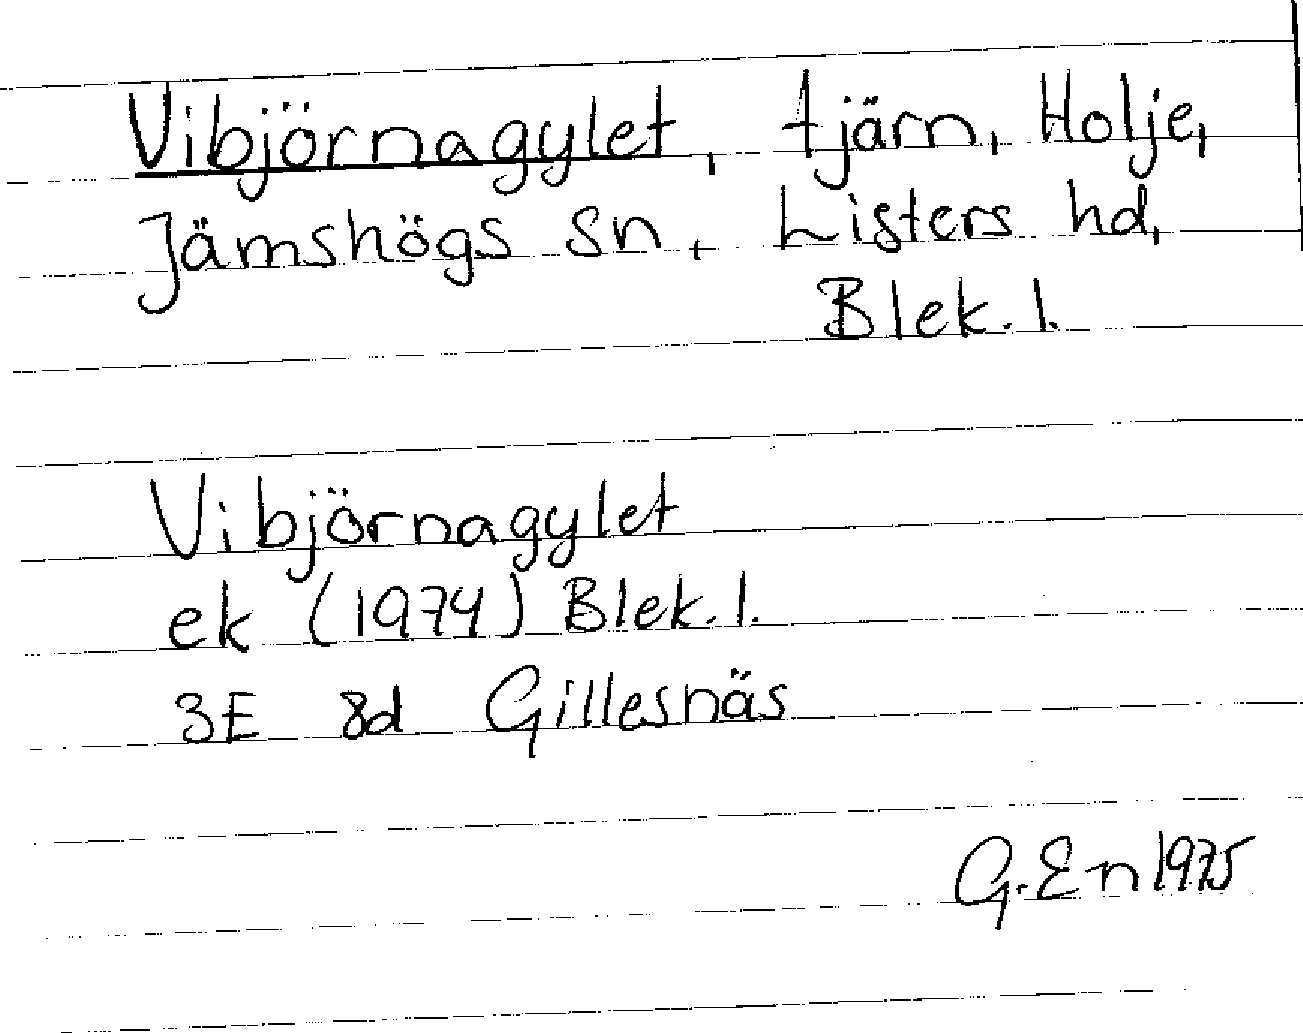 Vibjörnagylet, tjärn, Holje,
Jämshögs sn, Listers hd,
Blek. l.
Vibjörnagylet
ek (1974) Blek. l.
3E 8d Gillesnäs
G. En 1975